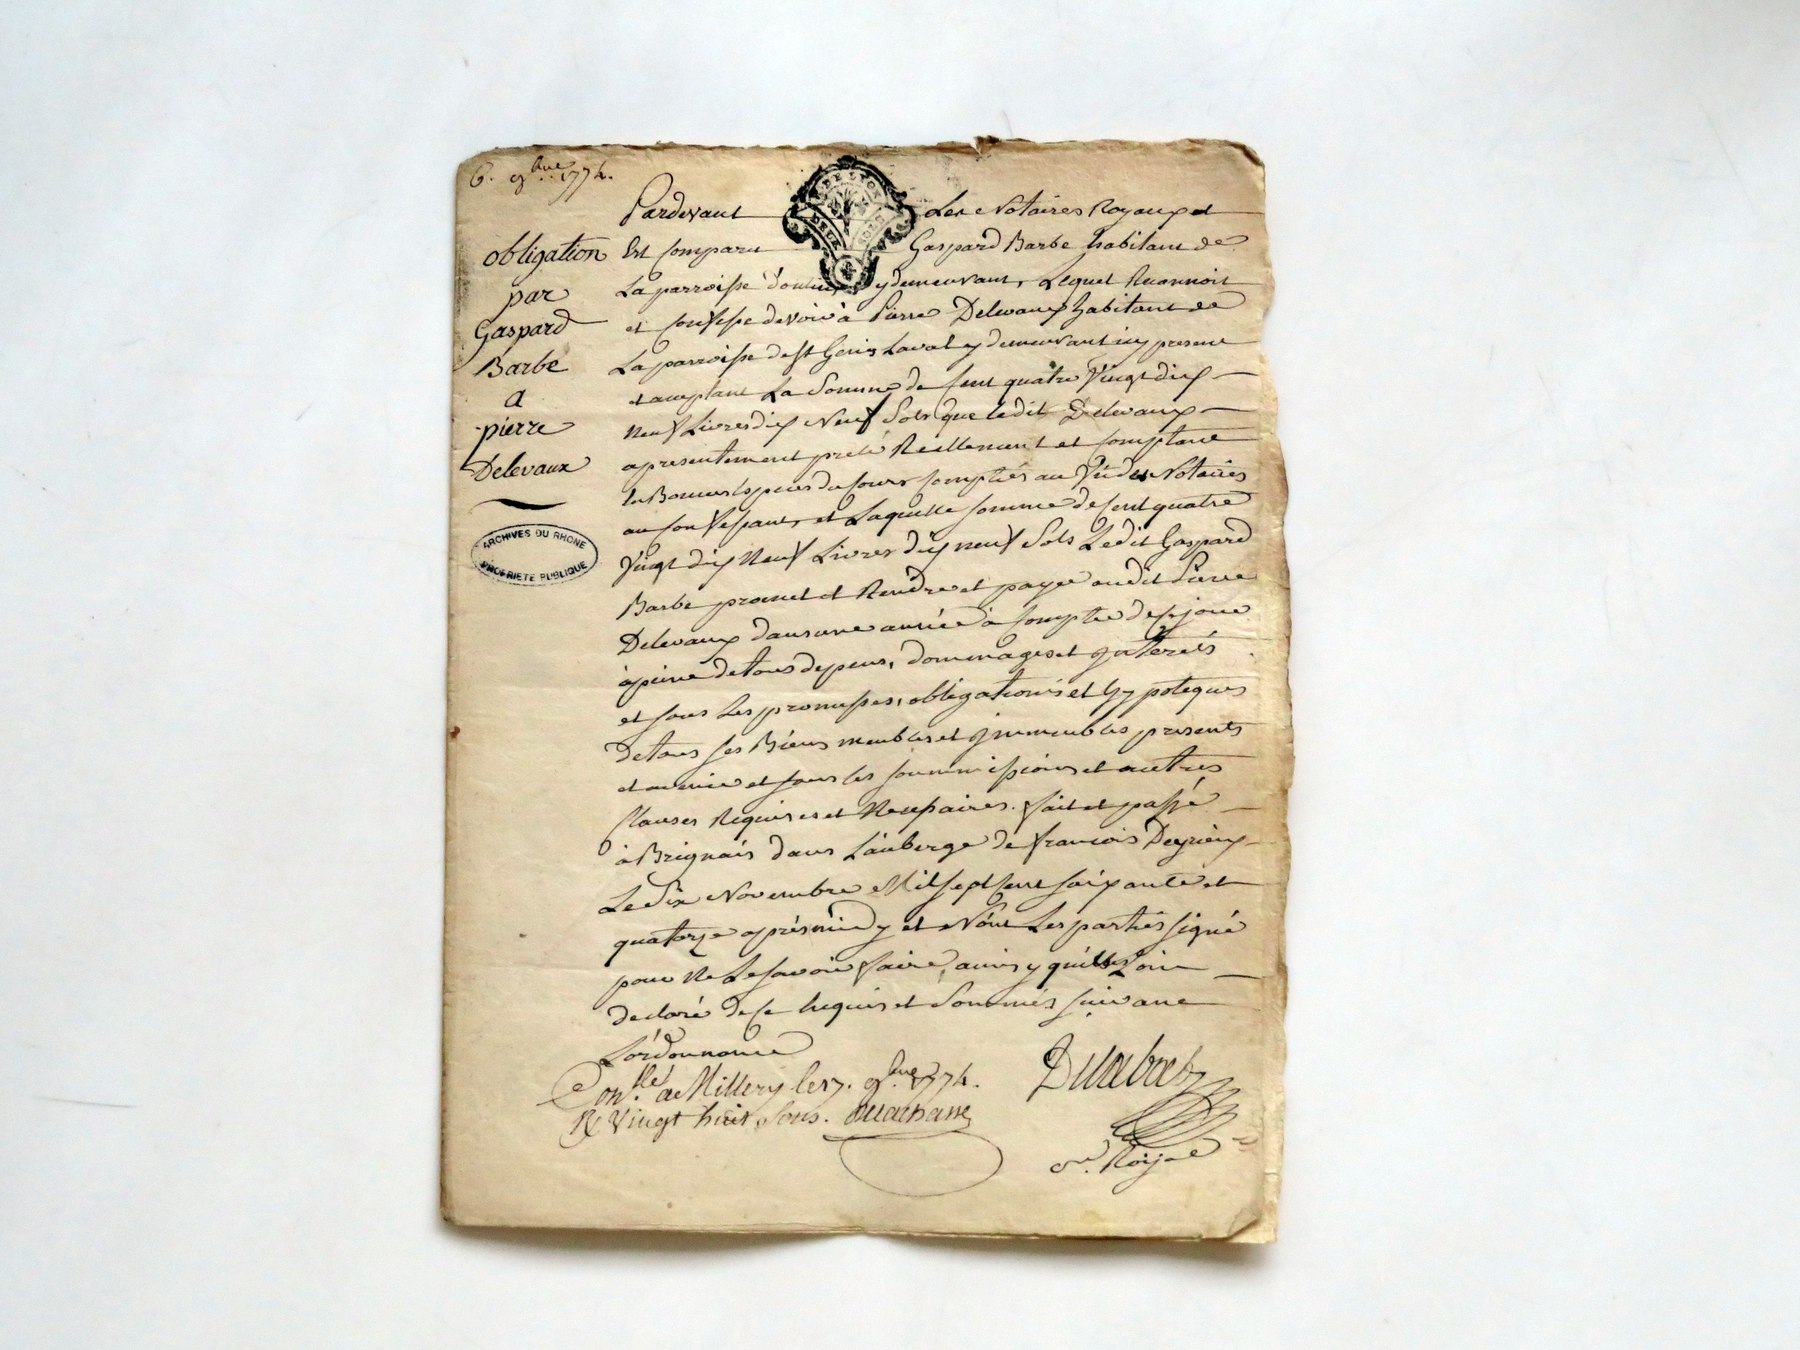 6. 9bre 1774.
obligation
par
Gaspard
Barbe
a
pierre
Delevaux
ARCHIVES DU RHONE
PROPRIETE PUBLIQUE
DE LYON
DEUX SOLS
Pardevant Les Notaires Royaux et
Est Comparu Gaspard Barbe habitant de
La parroisse d'oulins y demeurant, Lequel Reconnoit
et Confesse devoir à Pierre Delevaux habitant de
La parroisse de St Genis Laval y demeurant icy present
et acceptant La Somme de Cent quatre Vingt dix
Neuf Livres dix Neuf Sols que ledit Delevaux
a presentement preté Réellement et Comptant
En Bonnes Especes du Cours Comptées au Vû des Notaires
au Confessant, et Laquelle Somme de Cent quatre
Vingt dix Neuf Livres dix neuf Sols Ledit Gaspard
Barbe promet et Rendre et payer audit Pierre
Delevaux dans une année à Compter de ce jour
à peine de tous depens, dommages et jnterets
et sous Les promesses, obligations et hypoteques
de tous ses Biens meubles et jmmeubles presents
et avenir et sous les soummissions et autres
Clauses Requises et Necessaires. fait et passé
à Brignais dans L'auberge de françois
Le Six Novembre Mil sept Cent soixante et
quatorze après midy et N'ont Les parties signé
pour Ne Le savoir faire, ainsy qu'ills L'ont
declaré de ce Requis et Sommés suivant
L'ordonnance
Conlle a Millery le 17. 9bre 1774.
Rx Vingt huit Sous.
nre Royal